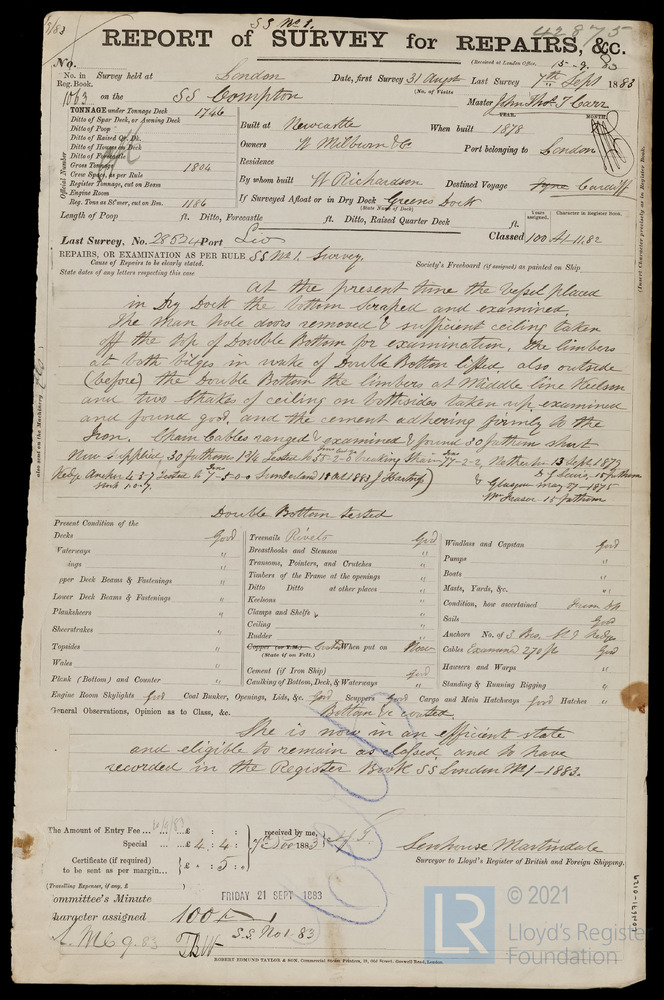 S S No 1.
42875
REPORT of SURVEY for REPAIRS, &c.
(Received at London Office, 15-9-83
No.
No. in Reg. Book. Survey held at London Date, first Survey 31 Augst Last Survey 7th Sept 1883
(No. of Visits)
1063 on the SS Compton Master John Thos. T Carr
TONNAGE under Tonnage Deck 1746
Ditto of Spar Deck, or Awning Deck
Ditto of Poop
Ditto of Raised Qr. Dk.
Ditto of House on Deck
Ditto of Forecastle
Gross Tonnage 1804
Crew Space, as per Rule
Register Tonnage, cut on Beam
Engine Room
Reg. Tons as St'mer, cut on Bm. 1186
Official Number
YEAR. MONTH.
Built at Newcastle When built 1878
Owners W Milburn & Co Port belonging to London
Residence
By whom built W Richardson Destined Voyage Tyne Cardiff
If Surveyed Afloat or in Dry Dock Greens Dock
(State Name of Dock)
Length of Poop ft. Ditto, Forecastle ft. Ditto, Raised Quarter Deck ft.
Years assigned. Character in Register Book.
Last Survey, No. 28634 Port Classed 100 A1 11,82
(Insert Character precisely as in Register Book.
REPAIRS, OR EXAMINATION AS PER RULE SS No 1. Survey
Cause of Repairs to be clearly stated. Society's Freeboard (if assigned) as painted on Ship
State dates of any letters respecting this case
At the present time the vessel placed
in Dry Dock the bottom scraped and examined.
The man hole doors removed & sufficient ceiling taken
off the top of Double Bottom for examination, the limbers
at both bilges in wake of Double Bottom lifted, also outside
(before) the Double Bottom the limbers at Middle line Keelson
and two strakes of ceiling on bothsides taken up, examined
and found good, and the cement adhering firmly to the
Iron. Chain Cables ranged & examined & found 30 fathom short
Now supplied 30 fathom 1 3/4 Tested to 55-2-0 breaking strain 77-2-2, Netherton 13 Sept 1873
Kedge Anchor 4 3 7 Tested to 7-5-0-0 Sunderland 18 Oct 1883 J Hartness)
& Glasgow May 27-1875
Wm Fraser 15 fathom
Double Bottom tested
also sent on the Machinery
Present Condition of the
Decks Good
Waterways "
ings "
pper Deck Beams & Fastenings "
Lower Deck Beams & Fastenings "
Planksheers "
Sheerstrakes "
Topsides "
Wales "
Plank (Bottom) and Counter "
Treenails Rivets Good
Breasthooks and Stemson "
Transoms, Pointers, and Crutches "
Timbers of the Frame at the openings "
Ditto Ditto at other places "
Keelsons "
Clamps and Shelfs "
Ceiling "
Rudder "
Copper (or Y.M.) Coated When put on Now
(State if on Felt.)
Cement (if Iron Ship) Good
Caulking of Bottom, Deck, & Waterways "
Windlass and Capstan Good
Pumps "
Boats "
Masts, Yards, &c. "
Condition, how ascertained From Dk
Sails Good
Anchors No. of 3 Brs. St & Kedge
Cables Examined 270 fm Good
Hawsers and Warps "
Standing & Running Rigging "
Engine Room Skylights Good Coal Bunker, Openings, Lids, &c. Good Scuppers Good Cargo and Main Hatchways Good Hatches "
General Observations, Opinion as to Class, &c. Bottom re coated.
She is now in an efficient state
and eligible to remain as classed and to have
recorded in the Register Book SS London No 1-1883.
The Amount of Entry Fee £ : :
10/9/83
Special £ 4 : 4 : received by me,
7th Nov 1883
Certificate (if required) to be sent as per margin. £ " : 5 :
Senhouse Martindale
Surveyor to Lloyd's Register of British and Foreign Shipping.
(Travelling Expenses, if any, £ )
ommittee's Minute FRIDAY 21 SEPT 1883
haracter assigned 100 A 1
S.S. No 1-83
L.M.C 9.83
ROBERT EDMUND TAYLOR & SON, Commercial Steam Printers, 19, Old Street, Goswell Road, London.
LON671-0129
LR
© 2021
Lloyd's Register
Foundation